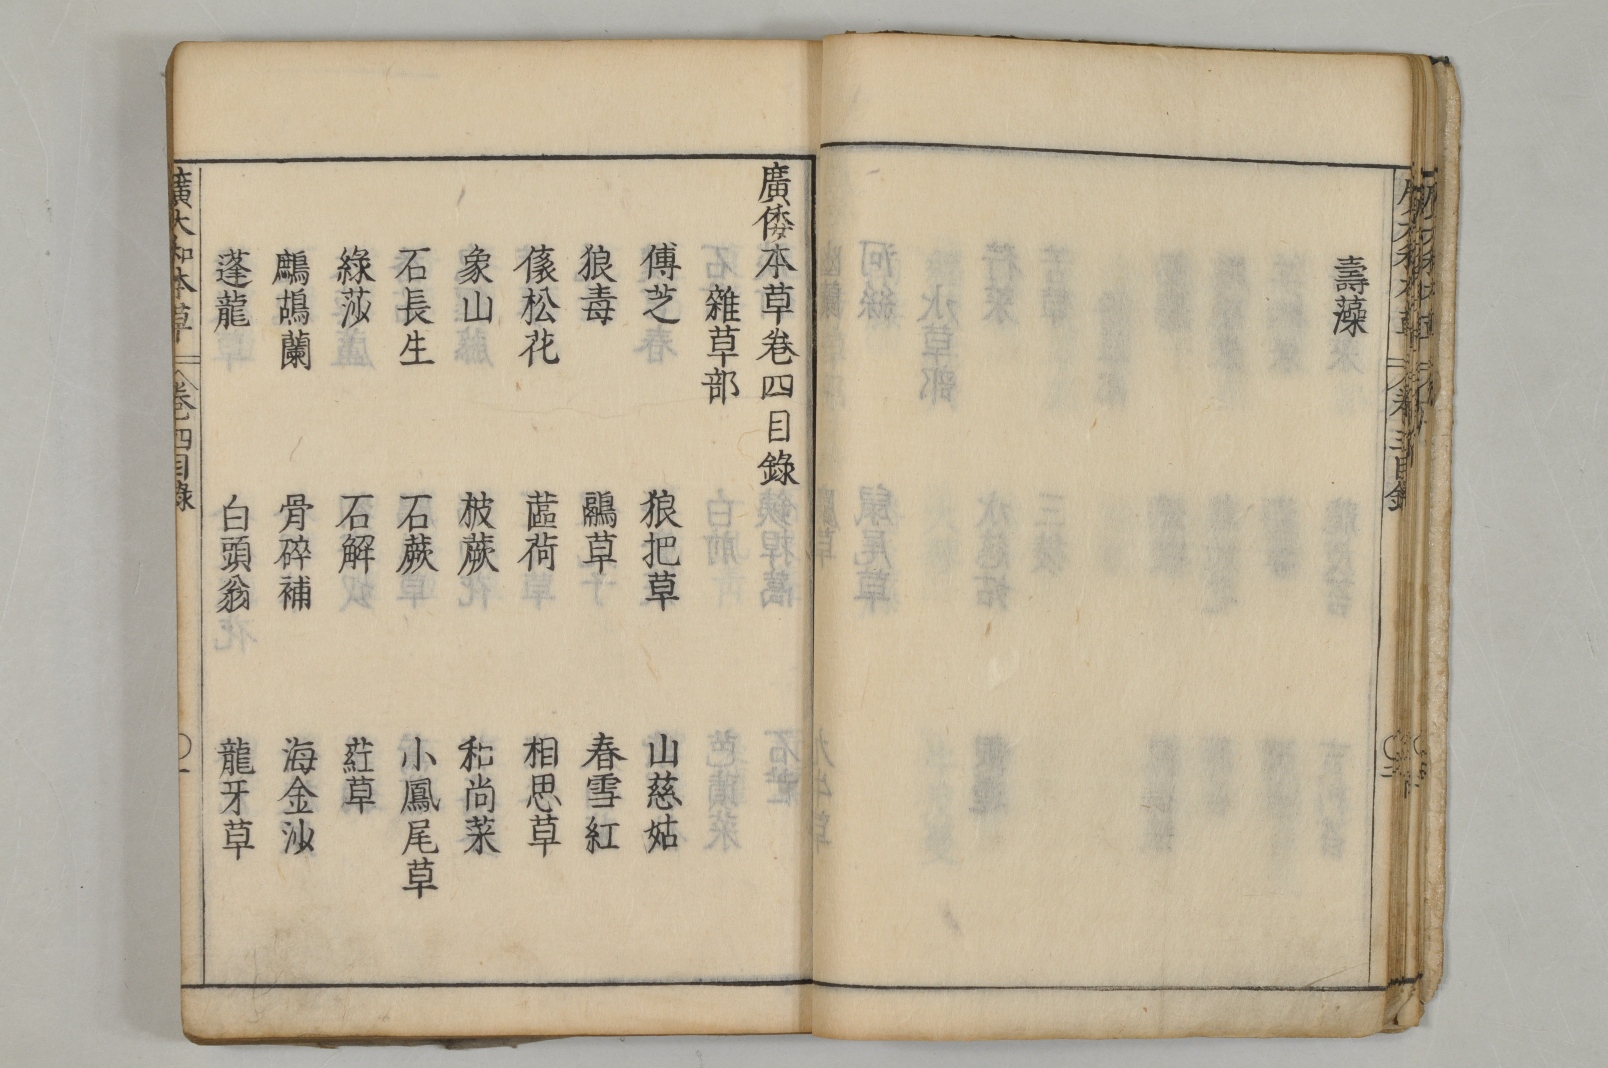 壽藻
廣倭本草卷四目錄
雜草部
傅芝 狼把草 山慈姑
狼毒 鷊草 春雪紅
傣松花 蘆荷 相思草
象山 柀蕨 和尚菜
石長生 石蕨 小鳳尾草
綠莎 石解 葒草
鷓鴣蘭 骨碎補 海金沙
蓬龍 白頭翁 龍牙草
廣大和本草 卷四目錄 〇一